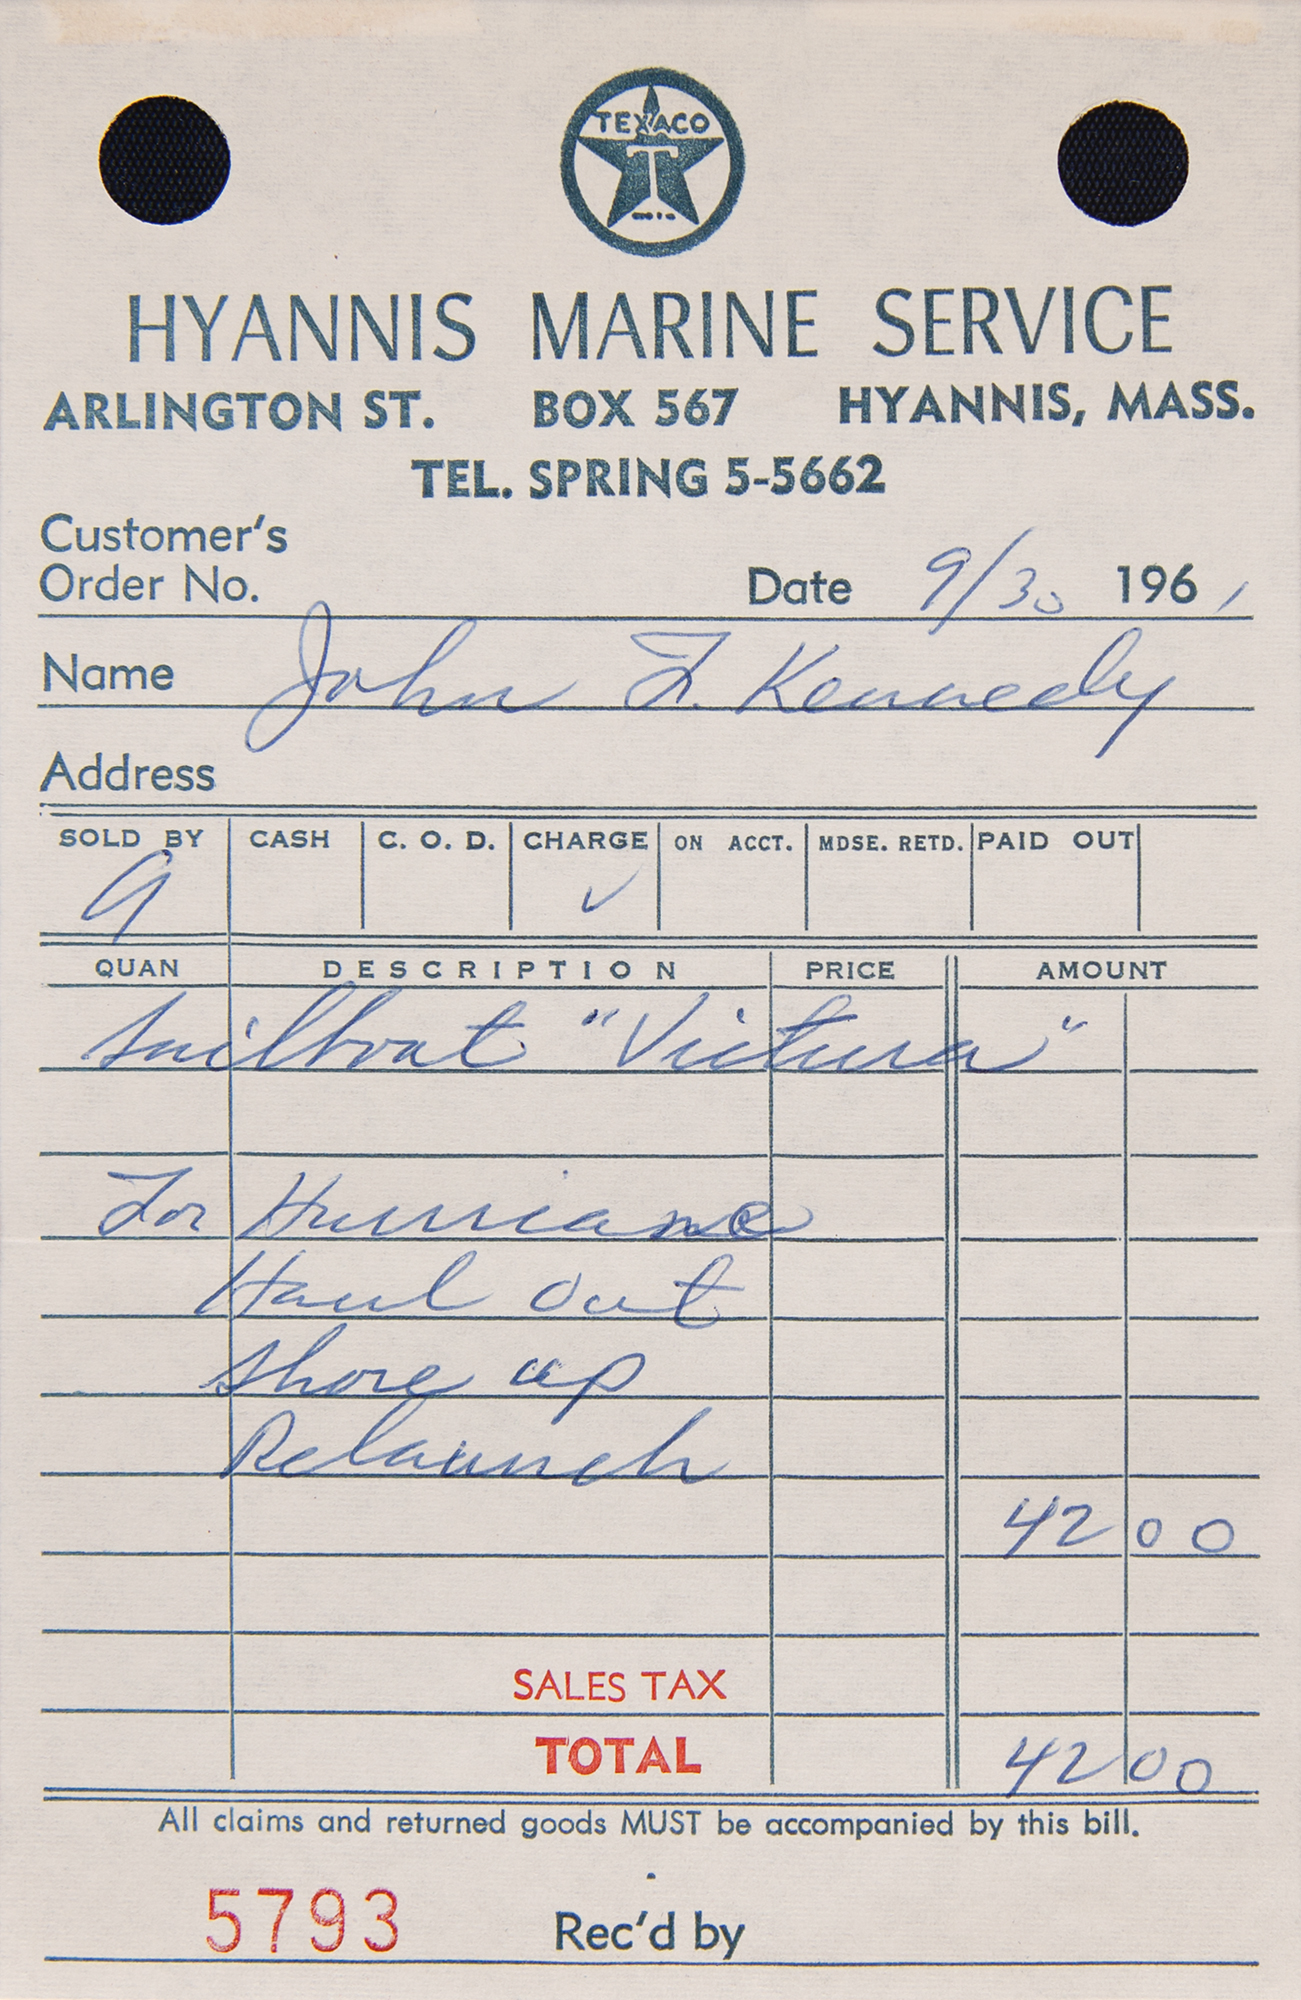 TEXACO
T
HYANNIS MARINE SERVICE
ARLINGTON ST. BOX 567 HYANNIS, MASS.
TEL. SPRING 5-5662
Customer's
Order No. Date 9/30 1961
Name John F. Kennedy
Address
SOLD BY CASH C. O. D. CHARGE ON ACCT. MDSE. RETD. PAID OUT
9 ✓
QUAN DESCRIPTION PRICE AMOUNT
Sailboat "Victura"
For Hurriane
Haul Out
Shore up
Relaunch
42 00
SALES TAX
TOTAL 42 00
All claims and returned goods MUST be accompanied by this bill.
5793 Rec'd by